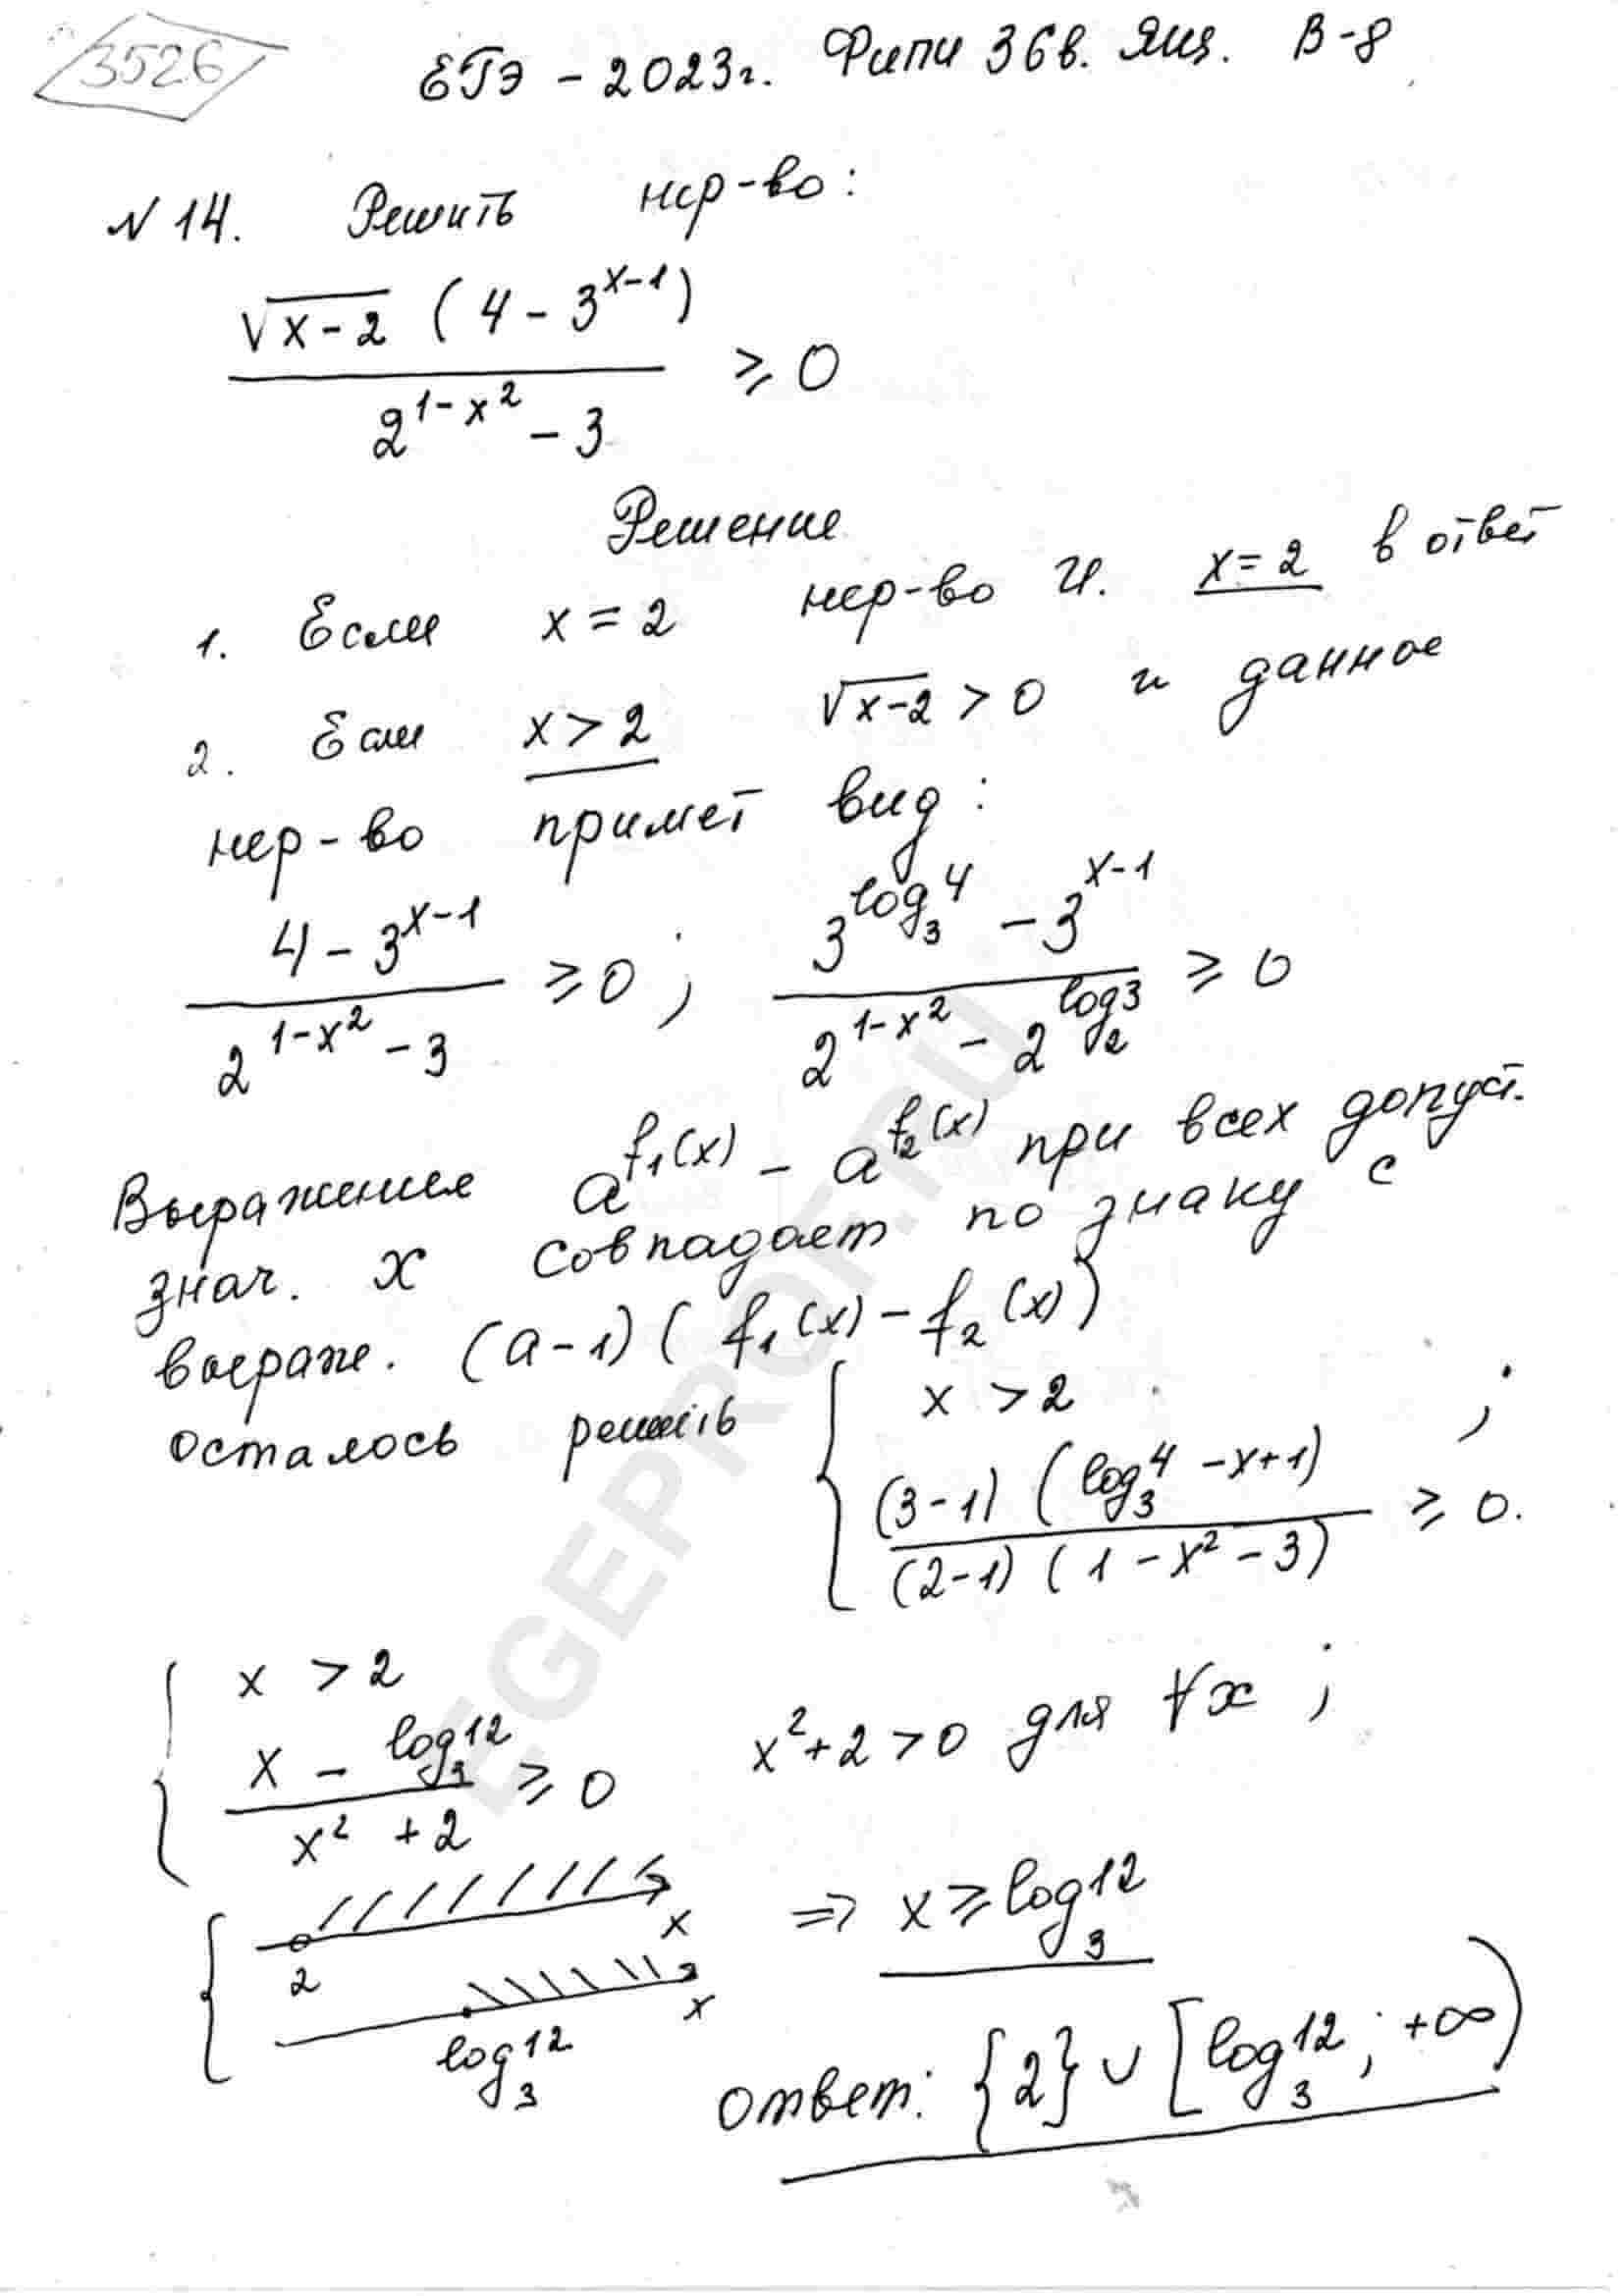 3526
ЕГЭ - 2023г. Фипи 36в. Ящ. В-8
N 14. Решить нер-во:
√(x-2) (4 - 3^(x-1))
2^(1-x²) - 3 ≥ 0
Решение
1. Если x = 2 нер-во И. x = 2 в ответ
2. Если x > 2 √(x-2) > 0 и данное
нер-во примет вид:
(4 - 3^(x-1)) / (2^(1-x²) - 3) ≥ 0 ; (3^(log₃4) - 3^(x-1)) / (2^(1-x²) - 2^(log₂3)) ≥ 0
Выражение a^(f₁(x)) - a^(f₂(x)) при всех допуст.
знач. x совпадает по знаку с
выраж. (a-1)(f₁(x) - f₂(x))
Осталось решить { x > 2 ;
(3-1)(log₃4 - x+1) / (2-1)(1 - x² - 3) ≥ 0.
{ x > 2
(x - log₃12) / (x² + 2) ≥ 0 x² + 2 > 0 для ∀x ;
2 x
log₃12 x
⇒ x ≥ log₃12
ответ: {2} ∪ [log₃12; +∞)
EGEPROF.RU